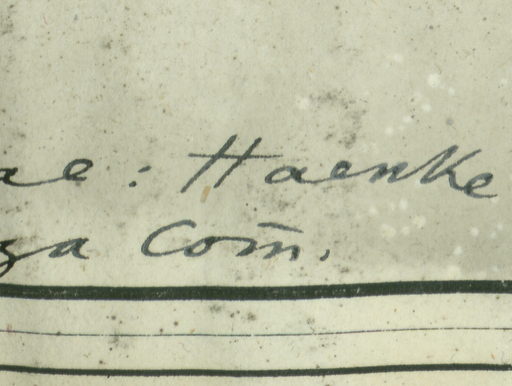 ae : Haenke
za Com̄.